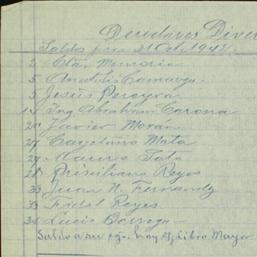 Deudores Diver
Saldo para 31 Oct. 1941.
2 Otto Memoria
5 Anatolio Camargo
5 Jesús Pereyra
14 Ing Abraham Corona
20 Javier Morán
27 Cayetano Mata
27 Mauro Tota
28 Presiliano Reyes
33 Juan N. Fernandz
33 Fidel Reyes
34 Lucio Borrego
Saldo a su cgo. hoy Libro Mayor